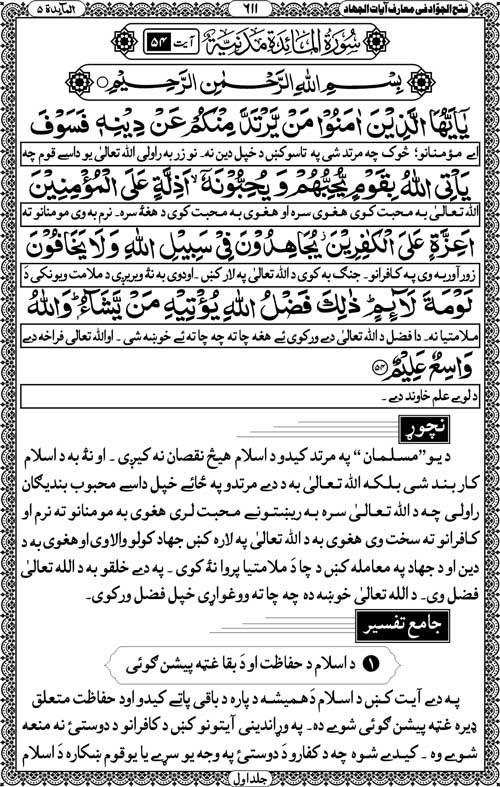 المآيدة ۵ ۶۱۱ فتح الجوّاد في معارف آيات الجهاد
سُورَةُ الْمَائِدَة مَدَنِيَّة آیت ۵۴
بِسْمِ اللهِ الرَّحْمٰنِ الرَّحِيْمِ
يٰٓاَيُّهَا الَّذِيْنَ اٰمَنُوْا مَنْ يَّرْتَدَّ مِنْكُمْ عَنْ دِيْنِهٖ فَسَوْفَ
اے مؤمنانو؛ څوک چه مرتد شی په تاسو کښ د خپل دین نه۔ نو زر به راولی الله تعالیٰ یو داسے قوم چه
يَاْتِى اللهُ بِقَوْمٍ يُّحِبُّهُمْ وَيُحِبُّوْنَهٗٓ ۙ اَذِلَّةٍ عَلَى الْمُؤْمِنِيْنَ
الله تعالیٰ به محبت کوی د هغوی سره او هغوی به محبت کوی د هغهٔ سره۔ نرم به وی مومنانو ته
اَعِزَّةٍ عَلَى الْكٰفِرِيْنَ ؗ يُجَاهِدُوْنَ فِىْ سَبِيْلِ اللهِ وَلَا يَخَافُوْنَ
زور آور به وی په کافرانو۔ جنګ به کوی د الله تعالیٰ په لار کښ۔ او دوی به نهٔ ویریږی د ملامت ویونکی دَ
لَوْمَةَ لَآئِمٍ ؕ ذٰلِكَ فَضْلُ اللهِ يُؤْتِيْهِ مَنْ يَّشَآءُ ؕ وَاللهُ
ملامتیا نه۔ دا فضل د الله تعالیٰ دے ورکوی ئے هغه چا ته چه چا ته ئے خوښه شی۔ او الله تعالیٰ فراخه دے
وَاسِعٌ عَلِيْمٌ ۝۵۴
د لوے علم خاوند دے۔
نچوړ
د یو "مسلمان" په مرتد کیدو د اسلام هیڅ نقصان نه کیږی۔ او نهٔ به د اسلام
کار بند شی بلکه الله تعالیٰ به د دے مرتدو په ځائے خپل داسے محبوب بندیګان
راولی چه د الله تعالیٰ سره به ریښتونے محبت لری هغوی به مومنانو ته نرم او
کافرانو ته سخت وی هغوی به د الله تعالیٰ په لاره کښ جهاد کولو والا وی او هغوی به د
دین او د جهاد په معامله کښ د چا دَ ملامتیا پروا نهٔ کوی۔ په دے خلقو به د الله تعالیٰ
فضل وی۔ د الله تعالیٰ خوښه ده چه چا ته ووغواړی خپل فضل ورکوی۔
جامع تفسیر
۱ د اسلام د حفاظت او دَ بقا غټه پیشن ګوئی
په دے آیت کښ د اسلام دَ همیشه د پاره د باقی پاتے کیدو او د حفاظت متعلق
ډیره غټه پیشن ګوئی شوے ده۔ په وړاندینی آیتونو کښ د کافرانو د دوستئ نه منعه
شوے وه۔ کیدے شوه چه د کفارو دَ دوستئ په وجه یو سړے یا یو قوم ښکاره دَ اسلام
جلد اول